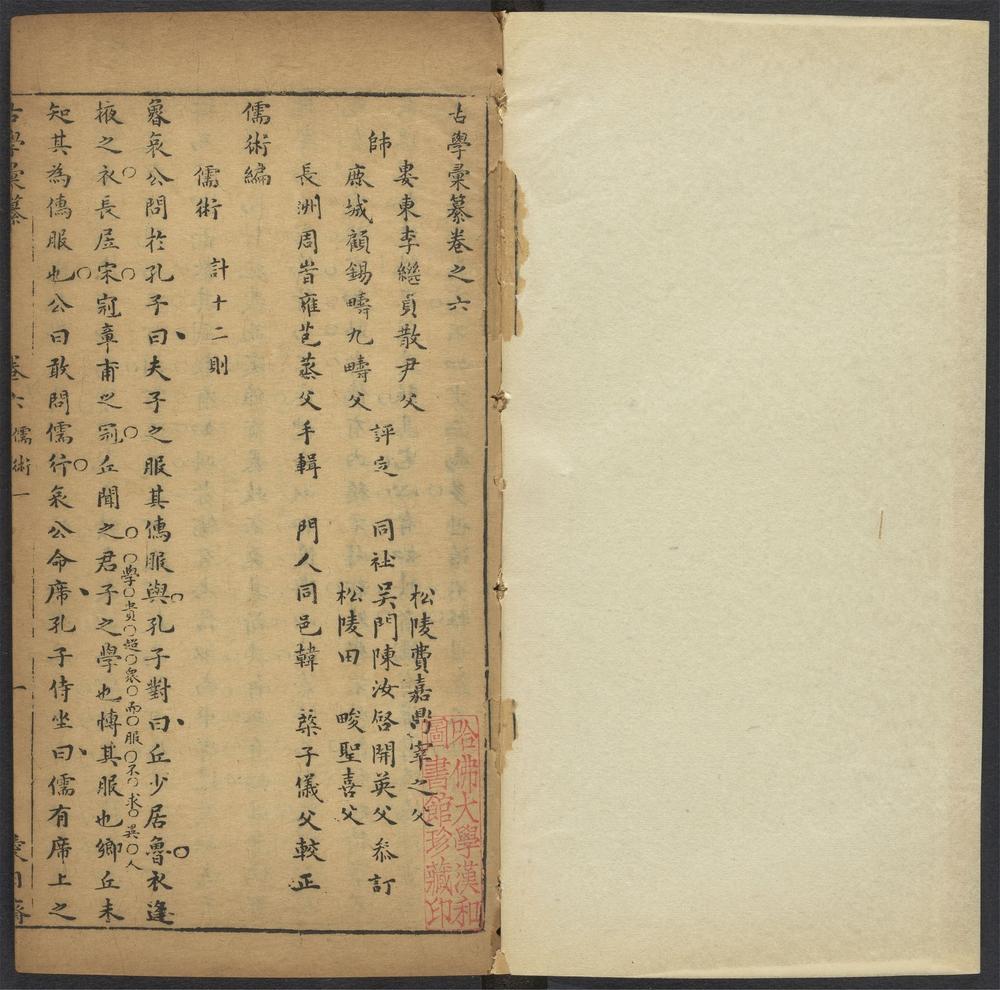 古學彙纂卷之六
婁東李繼貞散尹父
師
鹿城顧錫疇九疇父
評定
松陵費嘉鼎宰之父
同社吳門陳汝啓開英父
松陵田　畯聖喜父
叅訂
長洲周旹雍芑蒸父手輯　門人同邑韓　菜子儀父較正
儒術編
儒術
計十二則
魯哀公問於孔子曰夫子之服其儒服與孔子對曰丘少居魯衣逢
學貴超衆而服不求異人
掖之衣長居宋冠章甫之冠丘聞之君子之學也博其服也鄉丘未
知其為儒服也公曰敢問儒行哀公命席孔子侍坐曰儒有席上之
古學彙纂　卷六　儒術一　一
哈佛大學漢和
圖書館珍藏印